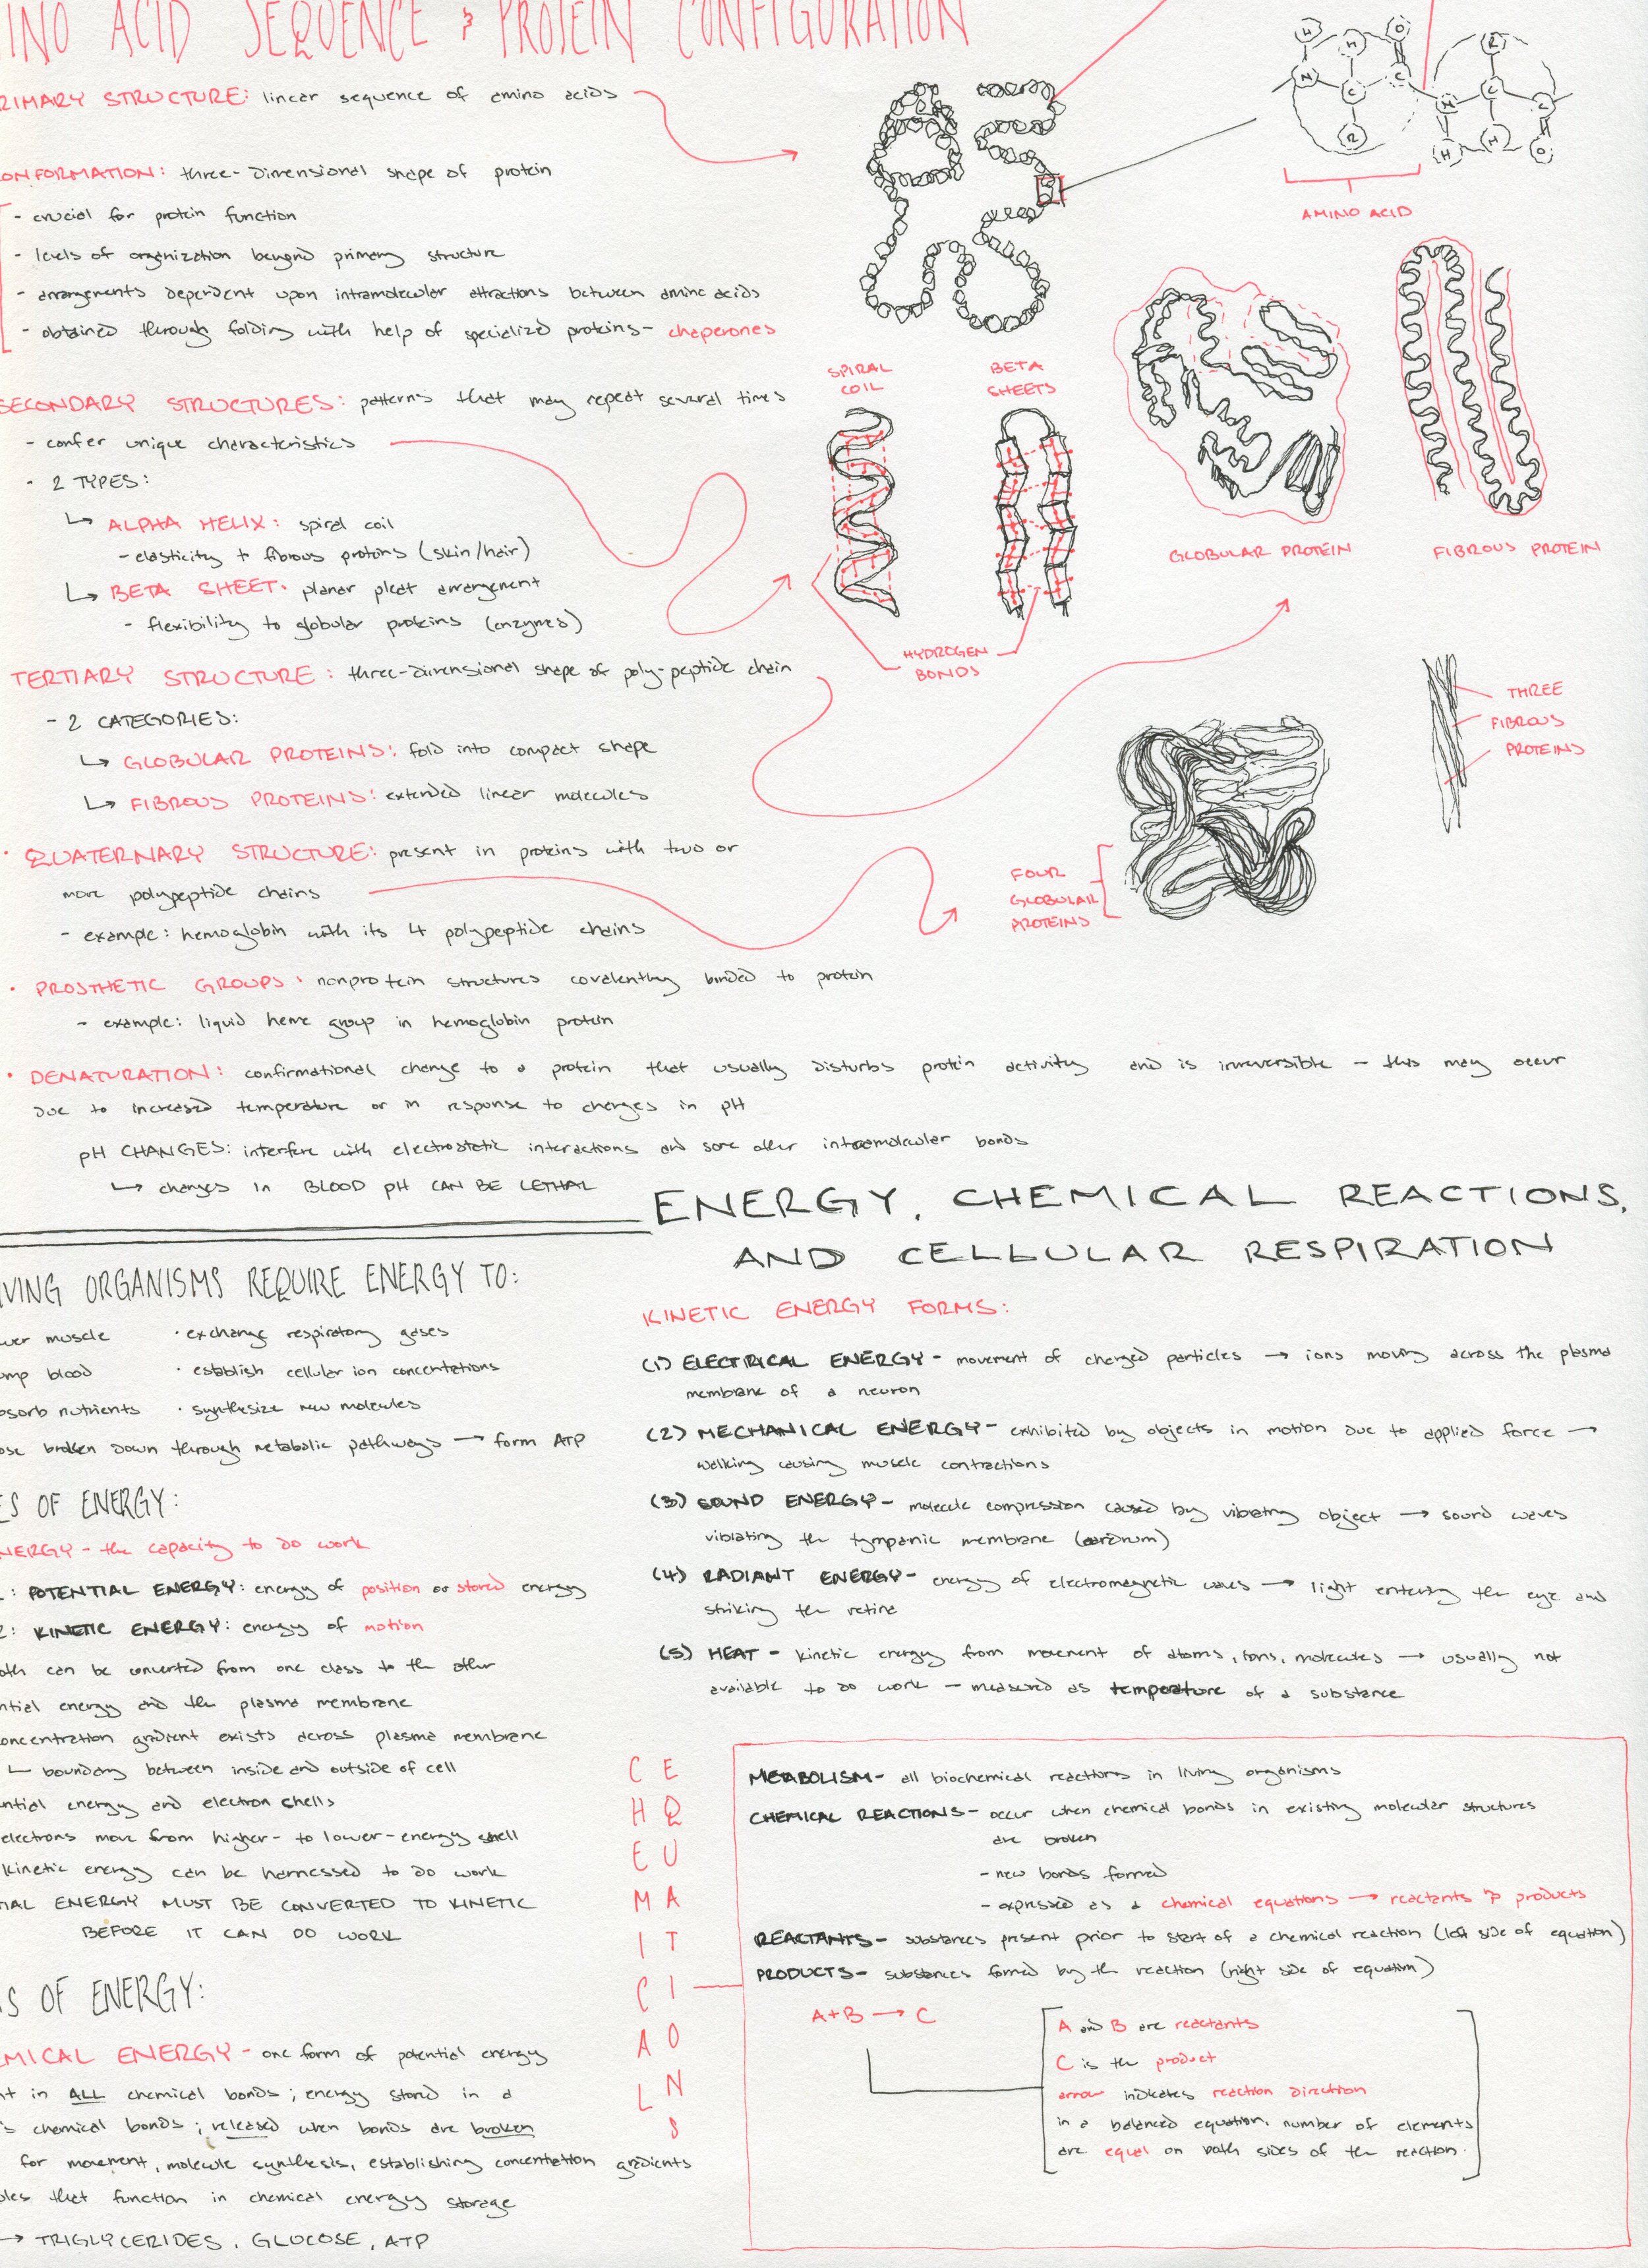 INO ACID SEQUENCE & PROTEIN CONFIGURATION
RIMARY STRUCTURE: linear sequence of amino acids
ONFORMATION: three-dimensional shape of protein
- crucial for protein function
- levels of organization beyond primary structure
- arrangements dependent upon intramolecular attractions between amino acids
- obtained through folding with help of specialized proteins - chaperones
SECONDARY STRUCTURES: patterns that may repeat several times
- confer unique characteristics
- 2 TYPES:
↳ ALPHA HELIX: spiral coil
- elasticity + fibrous proteins (skin/hair)
↳ BETA SHEET: planar pleat arrangement
- flexibility to globular proteins (enzymes)
TERTIARY STRUCTURE: three-dimensional shape of poly-peptide chain
- 2 CATEGORIES:
↳ GLOBULAR PROTEINS: fold into compact shape
↳ FIBROUS PROTEINS: extended linear molecules
• QUATERNARY STRUCTURE: present in proteins with two or
more polypeptide chains
- example: hemoglobin with its 4 polypeptide chains
• PROSTHETIC GROUPS: nonprotein structures covalently binded to protein
- example: liquid heme group in hemoglobin protein
• DENATURATION: confirmational change to a protein that usually disturbs protein activity and is irreversible - this may occur
due to increased temperature or in response to changes in pH
pH CHANGES: interfere with electrostatic interactions and some other intramolecular bonds
↳ changes in BLOOD pH CAN BE LETHAL
H
H
O
N
C
C
R
R
N
C
C
H
H
O
AMINO ACID
SPIRAL
COIL
BETA
SHEETS
HYDROGEN
BONDS
GLOBULAR PROTEIN
FIBROUS PROTEIN
THREE
FIBROUS
PROTEINS
FOUR
GLOBULAR
PROTEINS
ENERGY, CHEMICAL REACTIONS,
AND CELLULAR RESPIRATION
IVING ORGANISMS REQUIRE ENERGY TO:
wer muscle • exchange respiratory gases
ump blood • establish cellular ion concentrations
bsorb nutrients • synthesize new molecules
ose broken down through metabolic pathways → form ATP
ES OF ENERGY:
NERGY - the capacity to do work
1: POTENTIAL ENERGY: energy of position or stored energy
2: KINETIC ENERGY: energy of motion
oth can be converted from one class to the other
ntial energy and the plasma membrane
oncentration gradient exists across plasma membrane
↳ boundary between inside and outside of cell
ential energy and electron shells
electrons move from higher- to lower-energy shell
kinetic energy can be harnessed to do work
TIAL ENERGY MUST BE CONVERTED TO KINETIC
BEFORE IT CAN DO WORK
S OF ENERGY:
MICAL ENERGY - one form of potential energy
nt in ALL chemical bonds; energy stored in a
's chemical bonds; released when bonds are broken
for movement, molecule synthesis, establishing concentration gradients
les that function in chemical energy storage
→ TRIGLYCERIDES, GLUCOSE, ATP
KINETIC ENERGY FORMS:
(1) ELECTRICAL ENERGY - movement of charged particles → ions moving across the plasma
membrane of a neuron
(2) MECHANICAL ENERGY - exhibited by objects in motion due to applied force →
walking causing muscle contractions
(3) SOUND ENERGY - molecule compression caused by vibrating object → sound waves
vibrating the tympanic membrane (eardrum)
(4) RADIANT ENERGY - energy of electromagnetic waves → light entering the eye and
striking the retina
(5) HEAT - kinetic energy from movement of atoms, ions, molecules → usually not
available to do work - measured as temperature of a substance
CHEMICAL
EQUATIONS
METABOLISM - all biochemical reactions in living organisms
CHEMICAL REACTIONS - occur when chemical bonds in existing molecular structures
are broken
- new bonds formed
- expressed as a chemical equations → reactants & products
REACTANTS - substances present prior to start of a chemical reaction (left side of equation)
PRODUCTS - substances formed by the reaction (right side of equation)
A+B → C
A and B are reactants
C is the product
arrow indicates reaction direction
in a balanced equation, number of elements
are equal on both sides of the reaction.